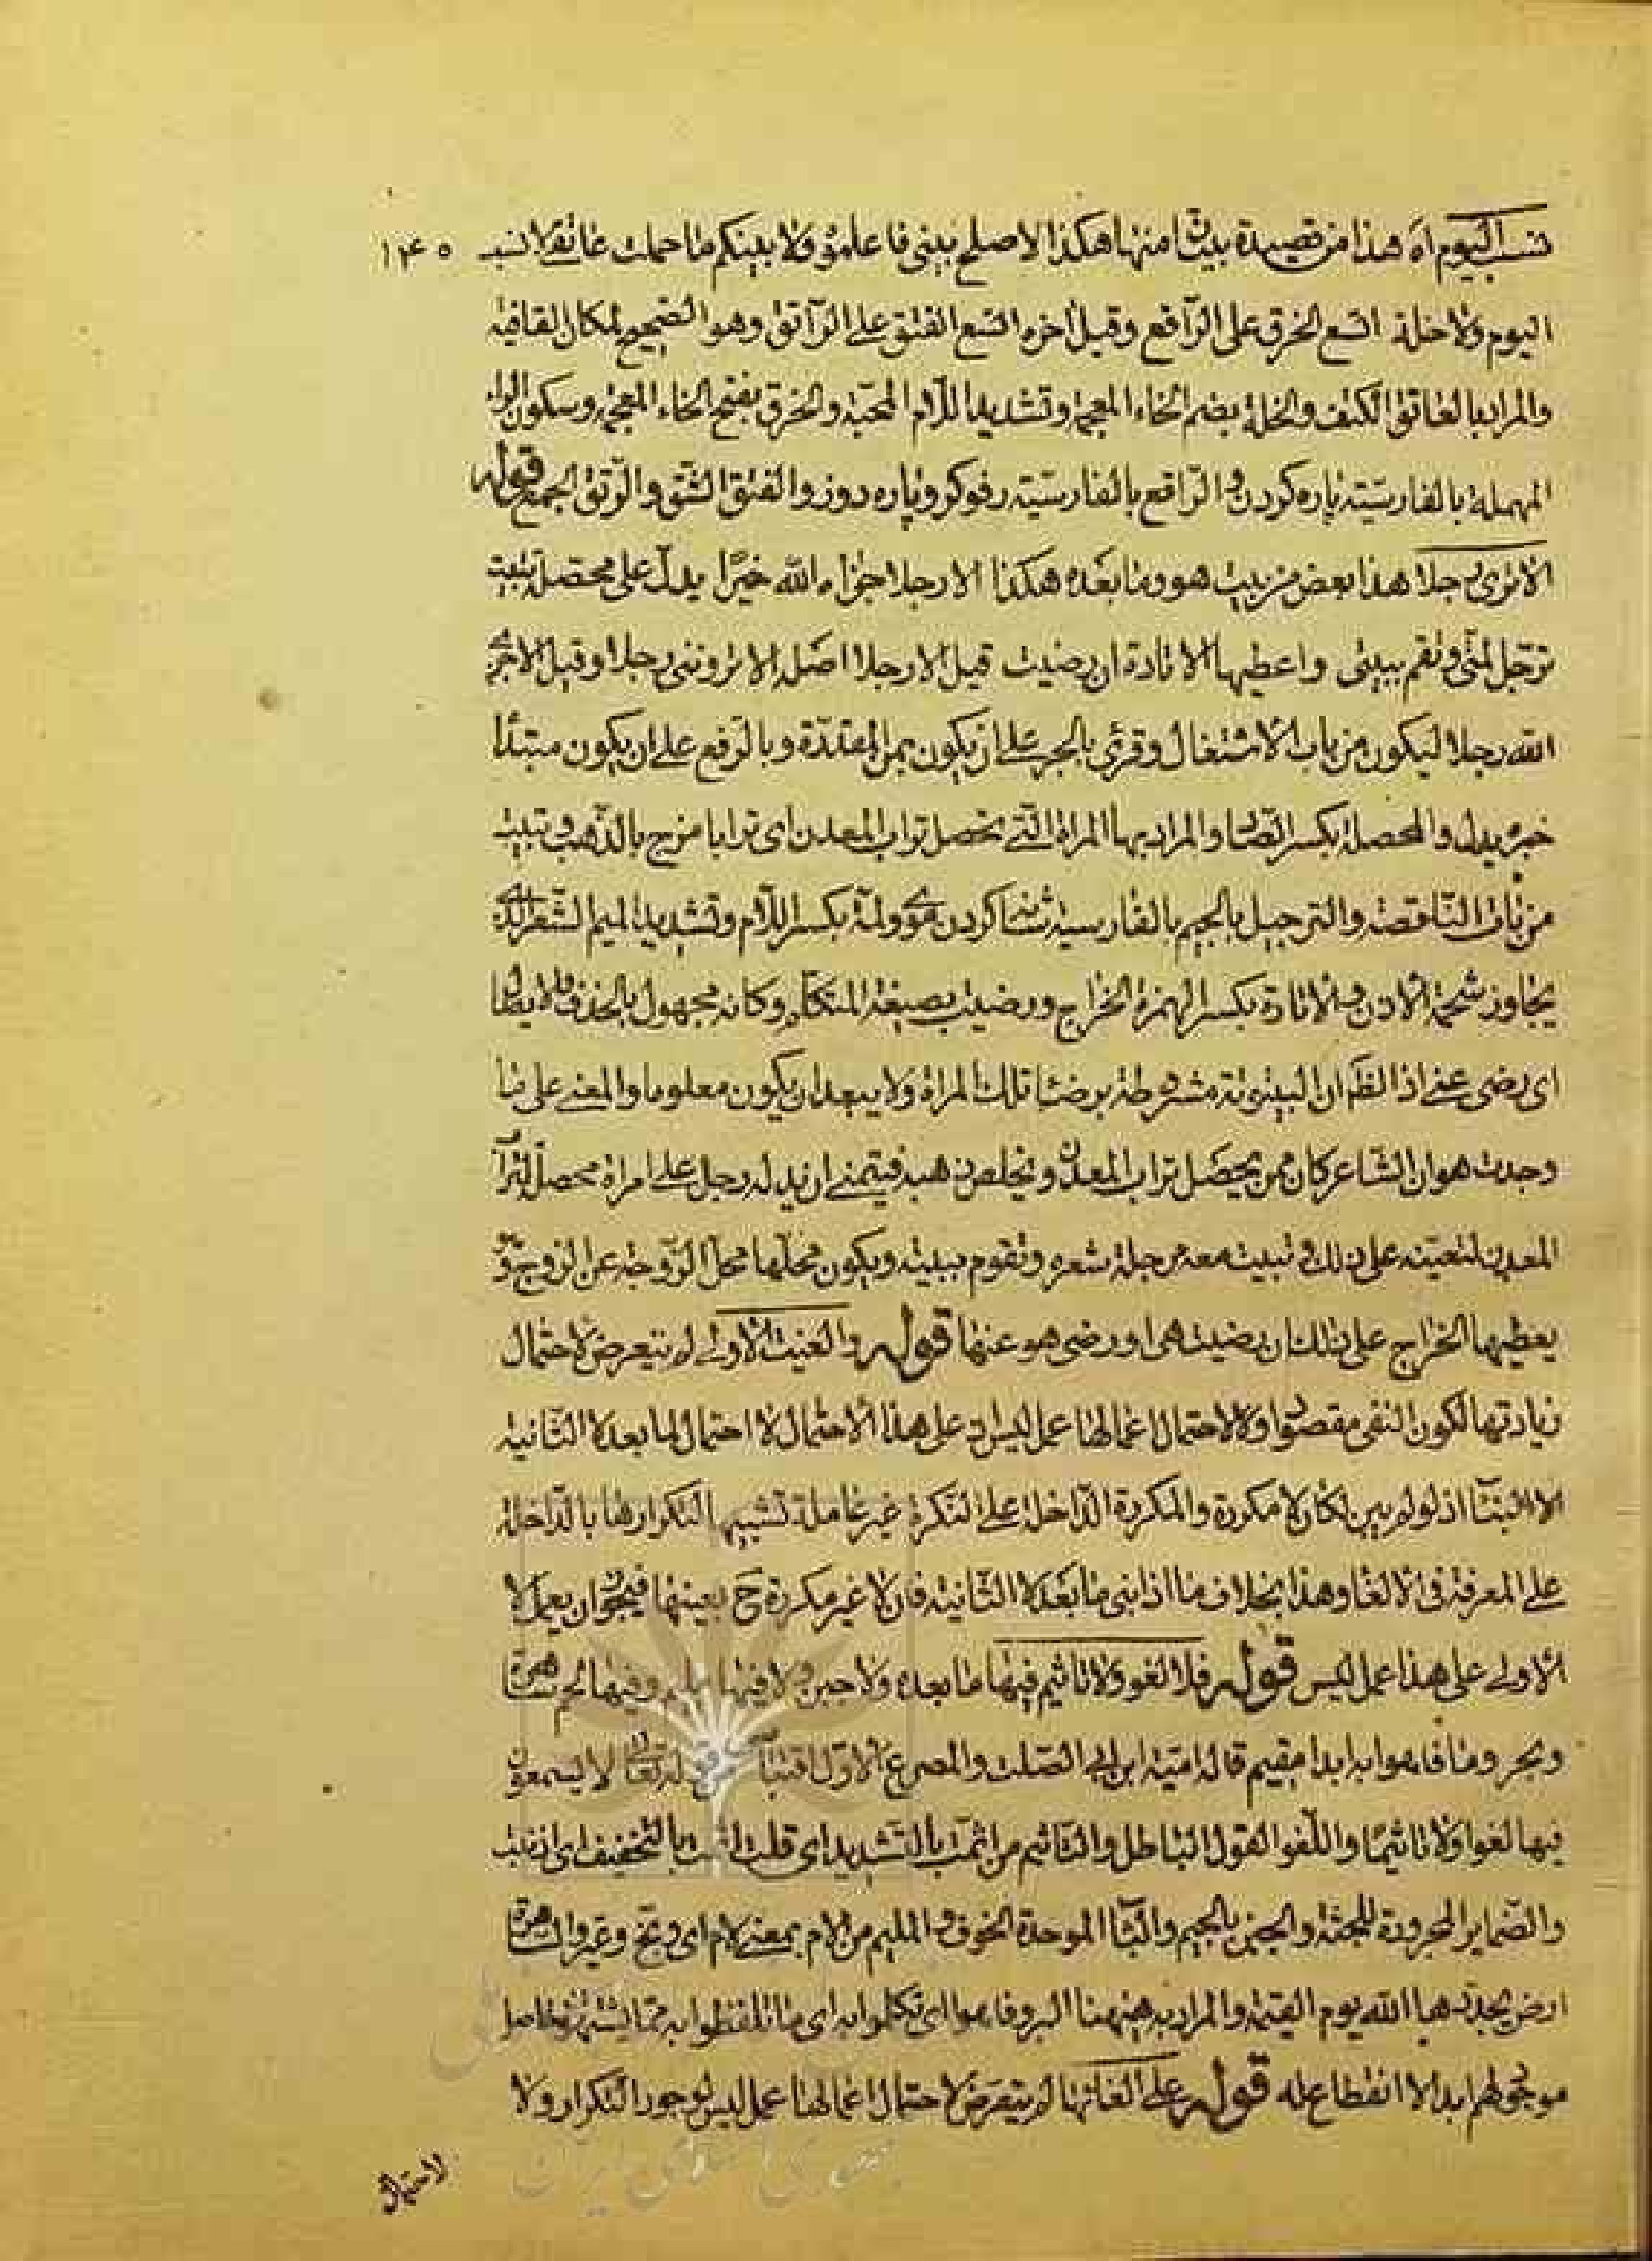 نسب اليوم اه هذا من قصيدة بيتان منها هكذا لا صلح بينى فاعلموه ولا بينكم ما حملت عاتقى لا نسب ١٣٤٥
اليوم ولا خلة اتسع الخرق على الراقع وقيل آخره اتسع الفتق على الراتق وهو الصحيح لمكان القافية
والمراد بالعاتق الكتف والخلة بضم الخاء المعجمة وتشديد اللام المحبّة والخرق بفتح الخاء المعجمة وسكون الراء
المهملة بالفارسيّة پاره كردن والراقع بالفارسيّة رفوكر و پاره دوز والفتق الشق والرتق الجمع قوله
الا ترى رجلا هذا بعض من بيت هو وما بعده هكذا الا رجلا جزاه الله خيرًا يدل على محصلة تبيت
ترجل لمتى وتقم بيتى واعطيها الاتاوة ان رضيت قيل الا رجلا اصله الا تروننى رجلا وقيل الا جزى
الله رجلا ليكون من باب الاشتغال وقرئ بالجر على ان يكون بمن المقدّرة وبالرفع على ان يكون مبتدأ
خبره يدل والمحصلة بكسر الصاد والمراد بها المراة التى تحصل تراب المعدن اى ترابا مزج بالذهب وتبيت
من بات الناقصة والترجيل بالجيم بالفارسية شانه كردن موى ولمّة بكسر اللام وتشديد الميم الشعر الذى
يجاوز شحمة الاذن والاتاوة بكسر الهمزة الخراج ورضيت بصيغة المتكلم وكانه مجهول بالحذف والايصال
اى رضى عنى اذ الظ ان البيتوتة مشروطة برضا تلك المراة ولا يبعد ان يكون معلوما والمعنى على ما
وجدت هو ان الشاعر كان ممن يحصل تراب المعدن ويخلص ذهبه فيتمنى ان يدله رجل على امراة محصلة لتراب
المعدن لتعينه على ذلك وتبيت معه مرجلة شعره وتقوم ببيته ويكون محلها محل الزوجة عن الزوج و
يعطيها الخراج على ذلك ان رضيت هى او رضى هو عنها قوله والغيت الاولى لم يتعرض لاحتمال
زيادتها لكون النفى مقصودا ولا لاحتمال اعمالها عمل ليس اذ على هذا الاحتمال لا احتمال لما بعد لا الثانية
الا البناء اذ لو لم يبن لكان لا مكررة والمكررة الداخلة على النكرة غير عاملة تشبيها لتكرارها بالداخلة
على المعرفة فى الالغاء وهذا بخلاف ما اذا بنى ما بعد لا الثانية فان لا غير مكررة ح بعينها فيجوز ان يعمل لا
الاولى على هذا عمل ليس قوله فلا لغو ولا تاثيم فيها ما بعده ولا حين ولا فيها مليم وفيها لحم ساهرة
وبحر وما فاهوا به ابدا مقيم قاله امية ابن ابى الصلت والمصرع الاول اقتباس من قوله تعالى لا يسمعون
فيها لغوا ولا تاثيمًا واللغو القول الباطل والتاثيم من اثمت بالتشديد اى قلت اثمت بالتخفيف اى اذنبت
والضماير المجرورة للجنة والجبن بالجيم والباء الموحدة الخوف والمليم من الام بمعنى لام اى وبّخ وعيّر والساهرة
ارض يجددها الله يوم القيمة والمراد به ههنا البر وفاهوا اى تكلموا به اى ما تلفظوا به مما يشتهونه حاصل
موجود لهم ابدا لا انقطاع له قوله على الغائها لم يتعرض لاحتمال اعمالها عمل ليس لوجود التكرار ولا
لاحتمال